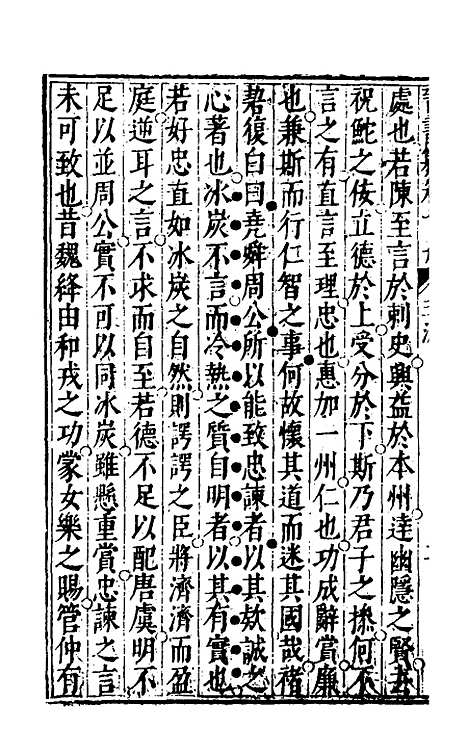 處也若陳至言於刺史興益於本州達幽隱之賢去
祝鮀之佞立德於上受分於下斯乃君子之操何不
言之有直言至理忠也惠加一州仁也功成辭賞廉
也兼斯而行仁智之事何故懷其道而迷其國哉褚
䂮復白曰堯舜周公所以能致忠諫者以其欵誠之
心著也氷炭不言而冷熱之質自明者以其有實也
若好忠直如氷炭之自然則諤諤之臣將濟濟而盈
庭逆耳之言不求而自至若德不足以配唐虞明不
足以並周公實不可以同氷炭雖懸重賞忠諫之言
未可致也昔魏絳由和戎之功蒙女樂之賜管仲有